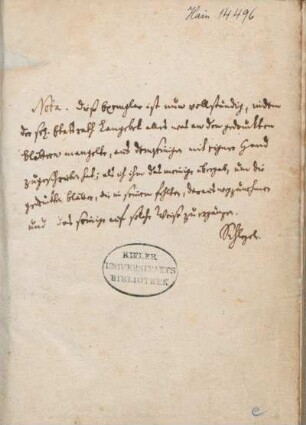 Hain 14496
Nota. dieß Exemplar ist nur vollständig, indem
der sel. Etatsrath Langebek alles was an den gedruckten
blättern mangelte, aus dem seinigen mit eigener Hand
zugeschrieben hat; als ich ihm das meinige übergab, um die
gedruckte blätter, die in seinem fehlten, daraus
und das seinige auf solche Weise zu ergänzen.
Schlegel.
KIELER
UNIVERSITAETS
BIBLIOTHEK
e